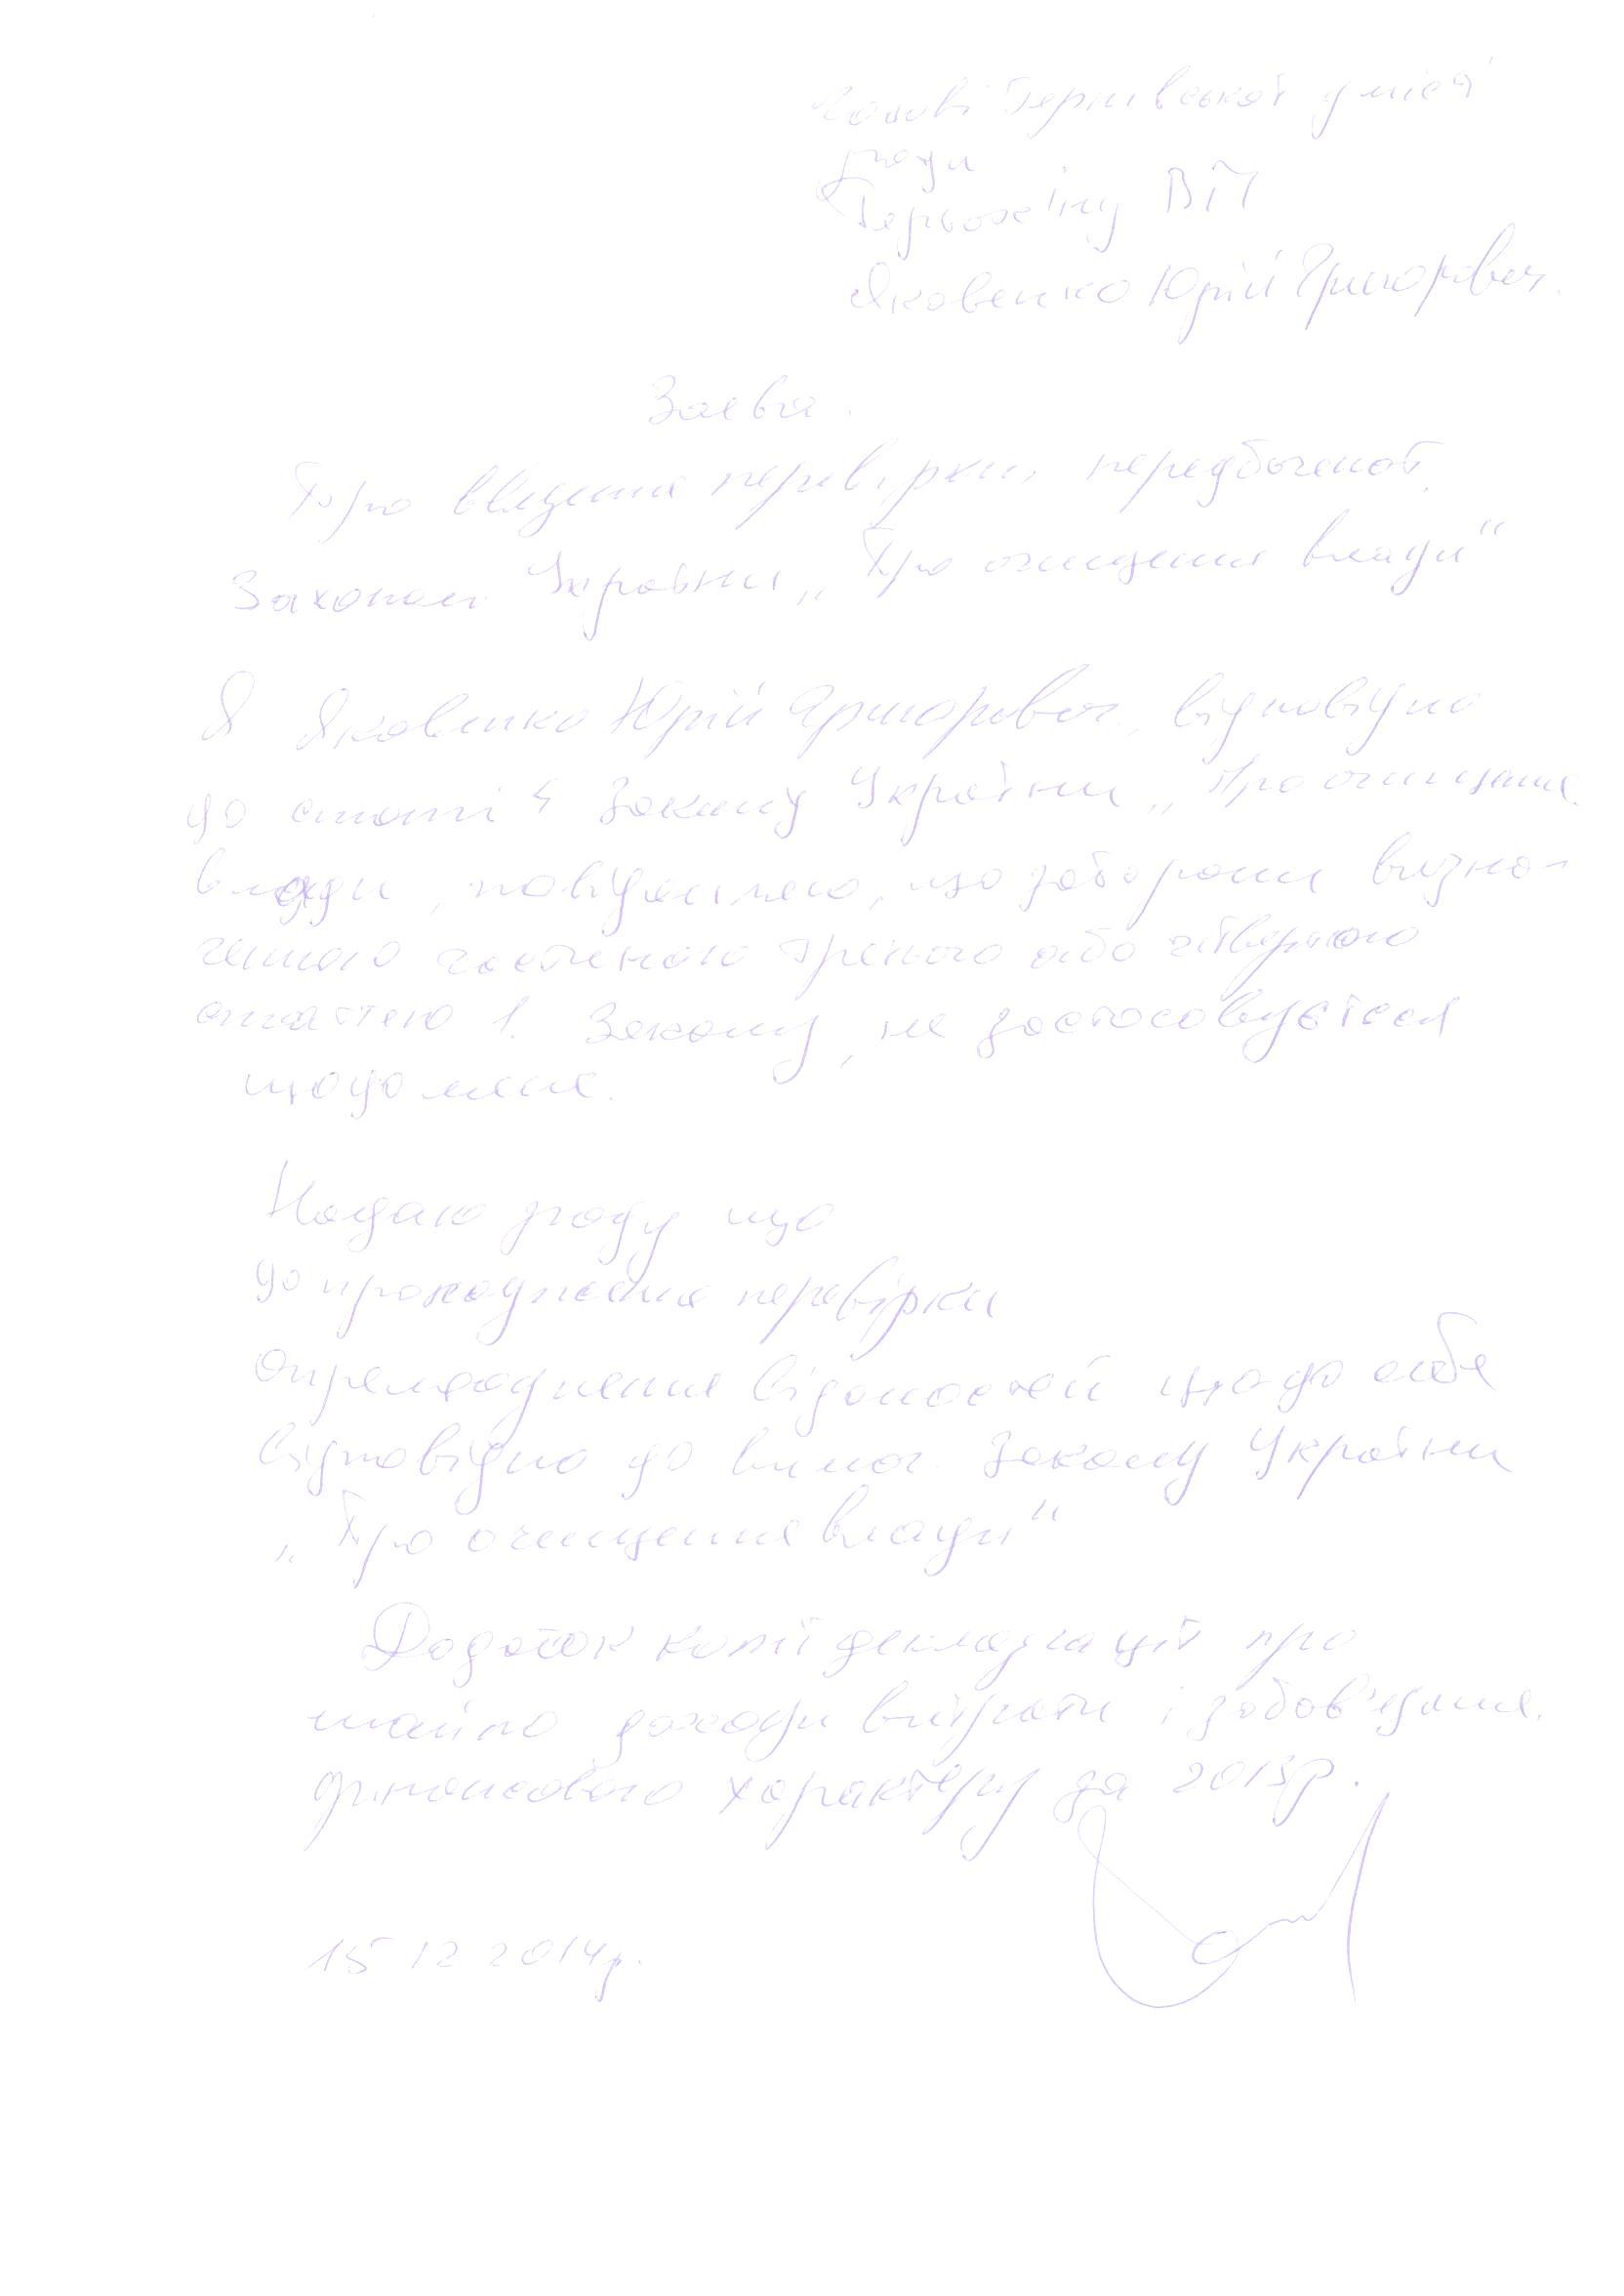 Голові Тернівської у місті
ради
ВП
Яковенко Юрій Григорович.
Заява.
Про введення перевірки, передбаченої
Законом України „Про очищення влади"
Я Яковенко Юрій Григорович, відповідно
до статті 4 Закону України „Про очищення
влади, повідомляю, що заборони визна-
ченою частиною третьою або четвертою
статтею 1. Закону, не застосовується
щодо мене.
Надаю згоду що
до проходження перевірки
оприлюднення відомостей щодо себе
відповідно до вимог Закону України
„Про очищення влади"
Додаток копії декларації про
майно доходи витрати і зобов'язання
фінансового характеру за 2013р.
15 12 2014р.